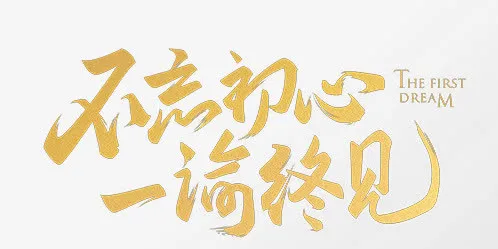 不忘初心
THE FIRST
DREAM
一谕终见